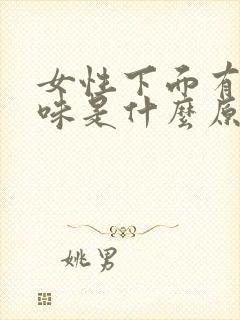 女性下面有
味是什麼原
姚男